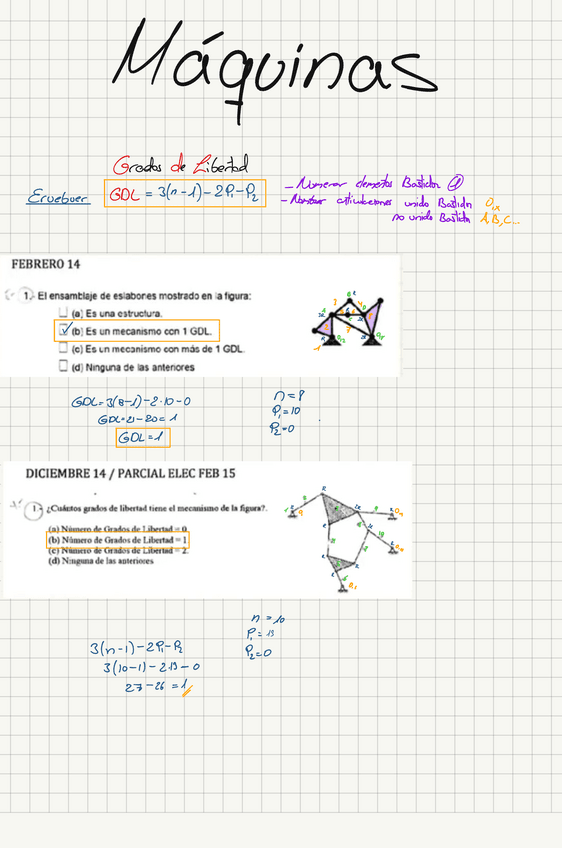 Máquinas
Grados de Libertad
Gruebuer GDL = 3(n-1)-2P₁-P₂
- Numerar elementos Bastidor ①
- Nombrar articulaciones unido Bastidor O₁,₂
no unido Bastidor A,B,C...
FEBRERO 14
1.- El ensamblaje de eslabones mostrado en la figura:
(a) Es una estructura.
(b) Es un mecanismo con 1 GDL.
(c) Es un mecanismo con más de 1 GDL.
(d) Ninguna de las anteriores
GDL=3(8-1)-2·10-0
GDL=21-20=1
GDL=1
n=8
P₁=10
P₂=0
DICIEMBRE 14 / PARCIAL ELEC FEB 15
1.- ¿Cuántos grados de libertad tiene el mecanismo de la figura?.
(a) Número de Grados de Libertad = 0
(b) Número de Grados de Libertad = 1
(c) Número de Grados de Libertad = 2
(d) Ninguna de las anteriores
n=10
P₁=13
P₂=0
3(n-1)-2P₁-P₂
3(10-1)-2·13-0
27-26=1